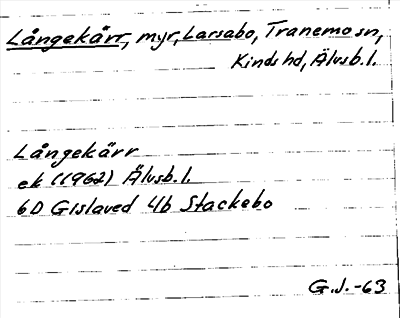 Långekärr, myr, Larsabo, Tranemo sn,
Kinds hd, Älvsb. l.
Långekärr
ek (1962) Älvsb. l.
6D Gislaved 4b Stackebo
G.J.-63